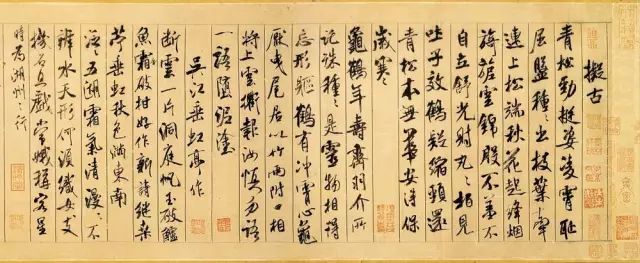 擬古
青松勁挺姿凌霄恥
屈盤種種出枝葉牽
連上松端秋花起絳烟
旖旎雲錦殷不羞不
自立舒光射丸丸柏見
吐子效鶴疑縮頸還
青松本無華安得保
歲寒
龜鶴年壽齊羽介所
託殊種種是靈物相得
忘形軀鶴有沖霄心龜
厭曳尾居以竹兩附口相
將上雲衢報汝慎勿語
一語墮泥塗
吳江垂虹亭作
断雲一片洞庭帆玉破鱸
魚霜破柑好作新詩繼桑
苧垂虹秋色滿東南
泛泛五湖霜氣清漫漫不
辨水天形何須織女支
機石且戲常娥稱客星
時為湖州之行